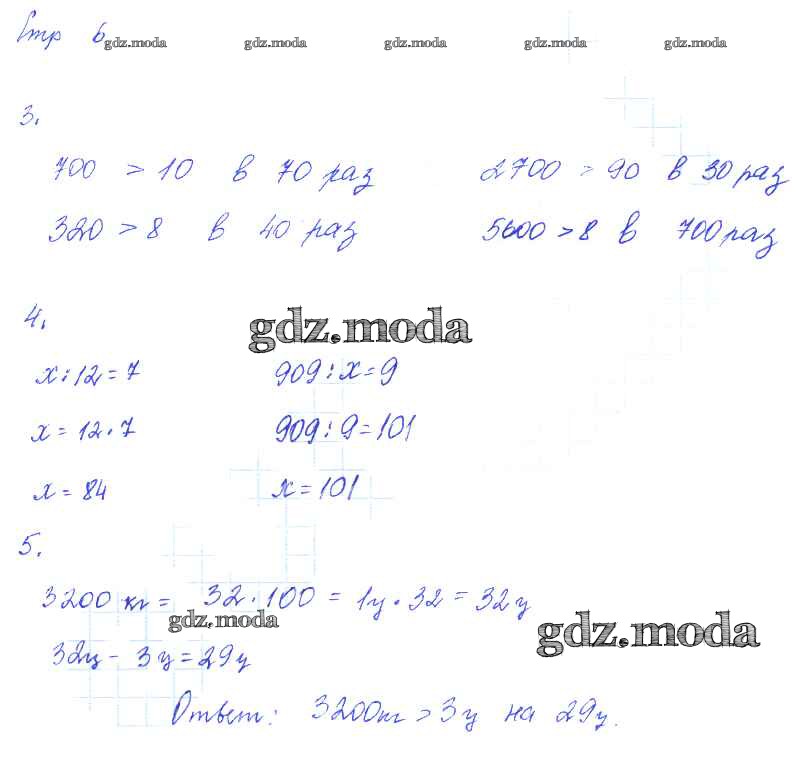 Стр 6
gdz.moda gdz.moda gdz.moda gdz.moda gdz.moda
3.
700 > 10 в 70 раз 2700 > 90 в 30 раз
320 > 8 в 40 раз 5600 > 8 в 700 раз
4.
gdz.moda
x : 12 = 7 909 : x = 9
x = 12 · 7 909 : 9 = 101
x = 84 x = 101
5.
3200 кг = 32 · 100 = 1ц · 32 = 32ц
gdz.moda gdz.moda
32ц - 3ц = 29ц
Ответ: 3200кг > 3ц на 29ц.